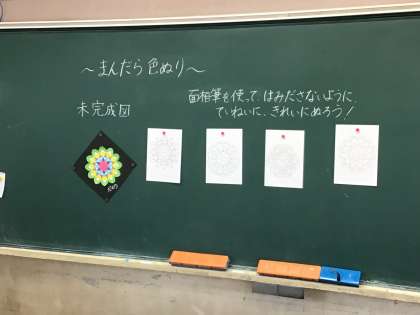 ～まんだら色ぬり～
未完成図
面相筆を使って、はみださないように、
ていねいに、きれいにぬろう！